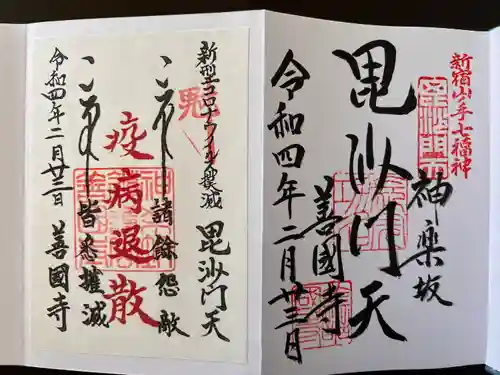 新宿山ノ手七福神
神楽坂
毘沙門天
善國寺
令和四年二月廿三日
新型コロナウイルス撲滅
毘沙門天
諸餘怨敵
疫病退散
皆悉摧滅
善國寺
令和四年二月廿三日